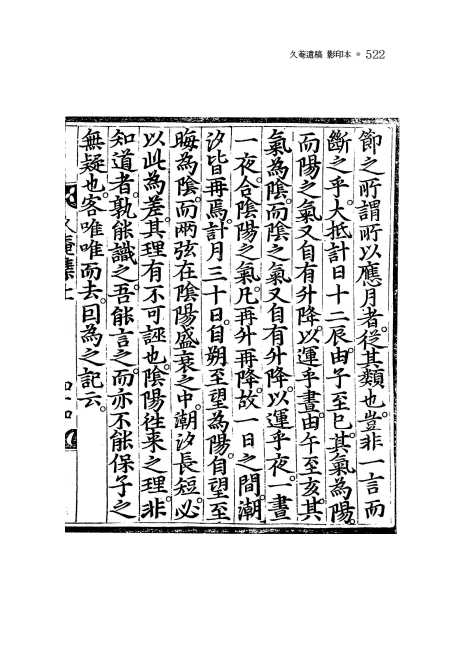 久菴遺稿 影印本 ● 522
節之所謂所以應月者。從其類也。豈非一言而
斷之乎。大抵計日十二辰。由子至巳。其氣爲陽。
而陽之氣又自有升降。以運乎晝。由午至亥。其
氣爲陰。而陰之氣又自有升降。以運乎夜。一晝
一夜。合陰陽之氣。凡再升再降。故一日之間。潮
汐皆再焉。計月三十日。自朔至望爲陽。自望至
晦爲陰。而兩弦在陰陽盛衰之中。潮汐長短。必
以此爲差。其理有不可誣也。陰陽往来之理。非
知道者。孰能識之。吾能言之。而亦不能保子之
無疑也。客唯唯而去。因爲之記云。